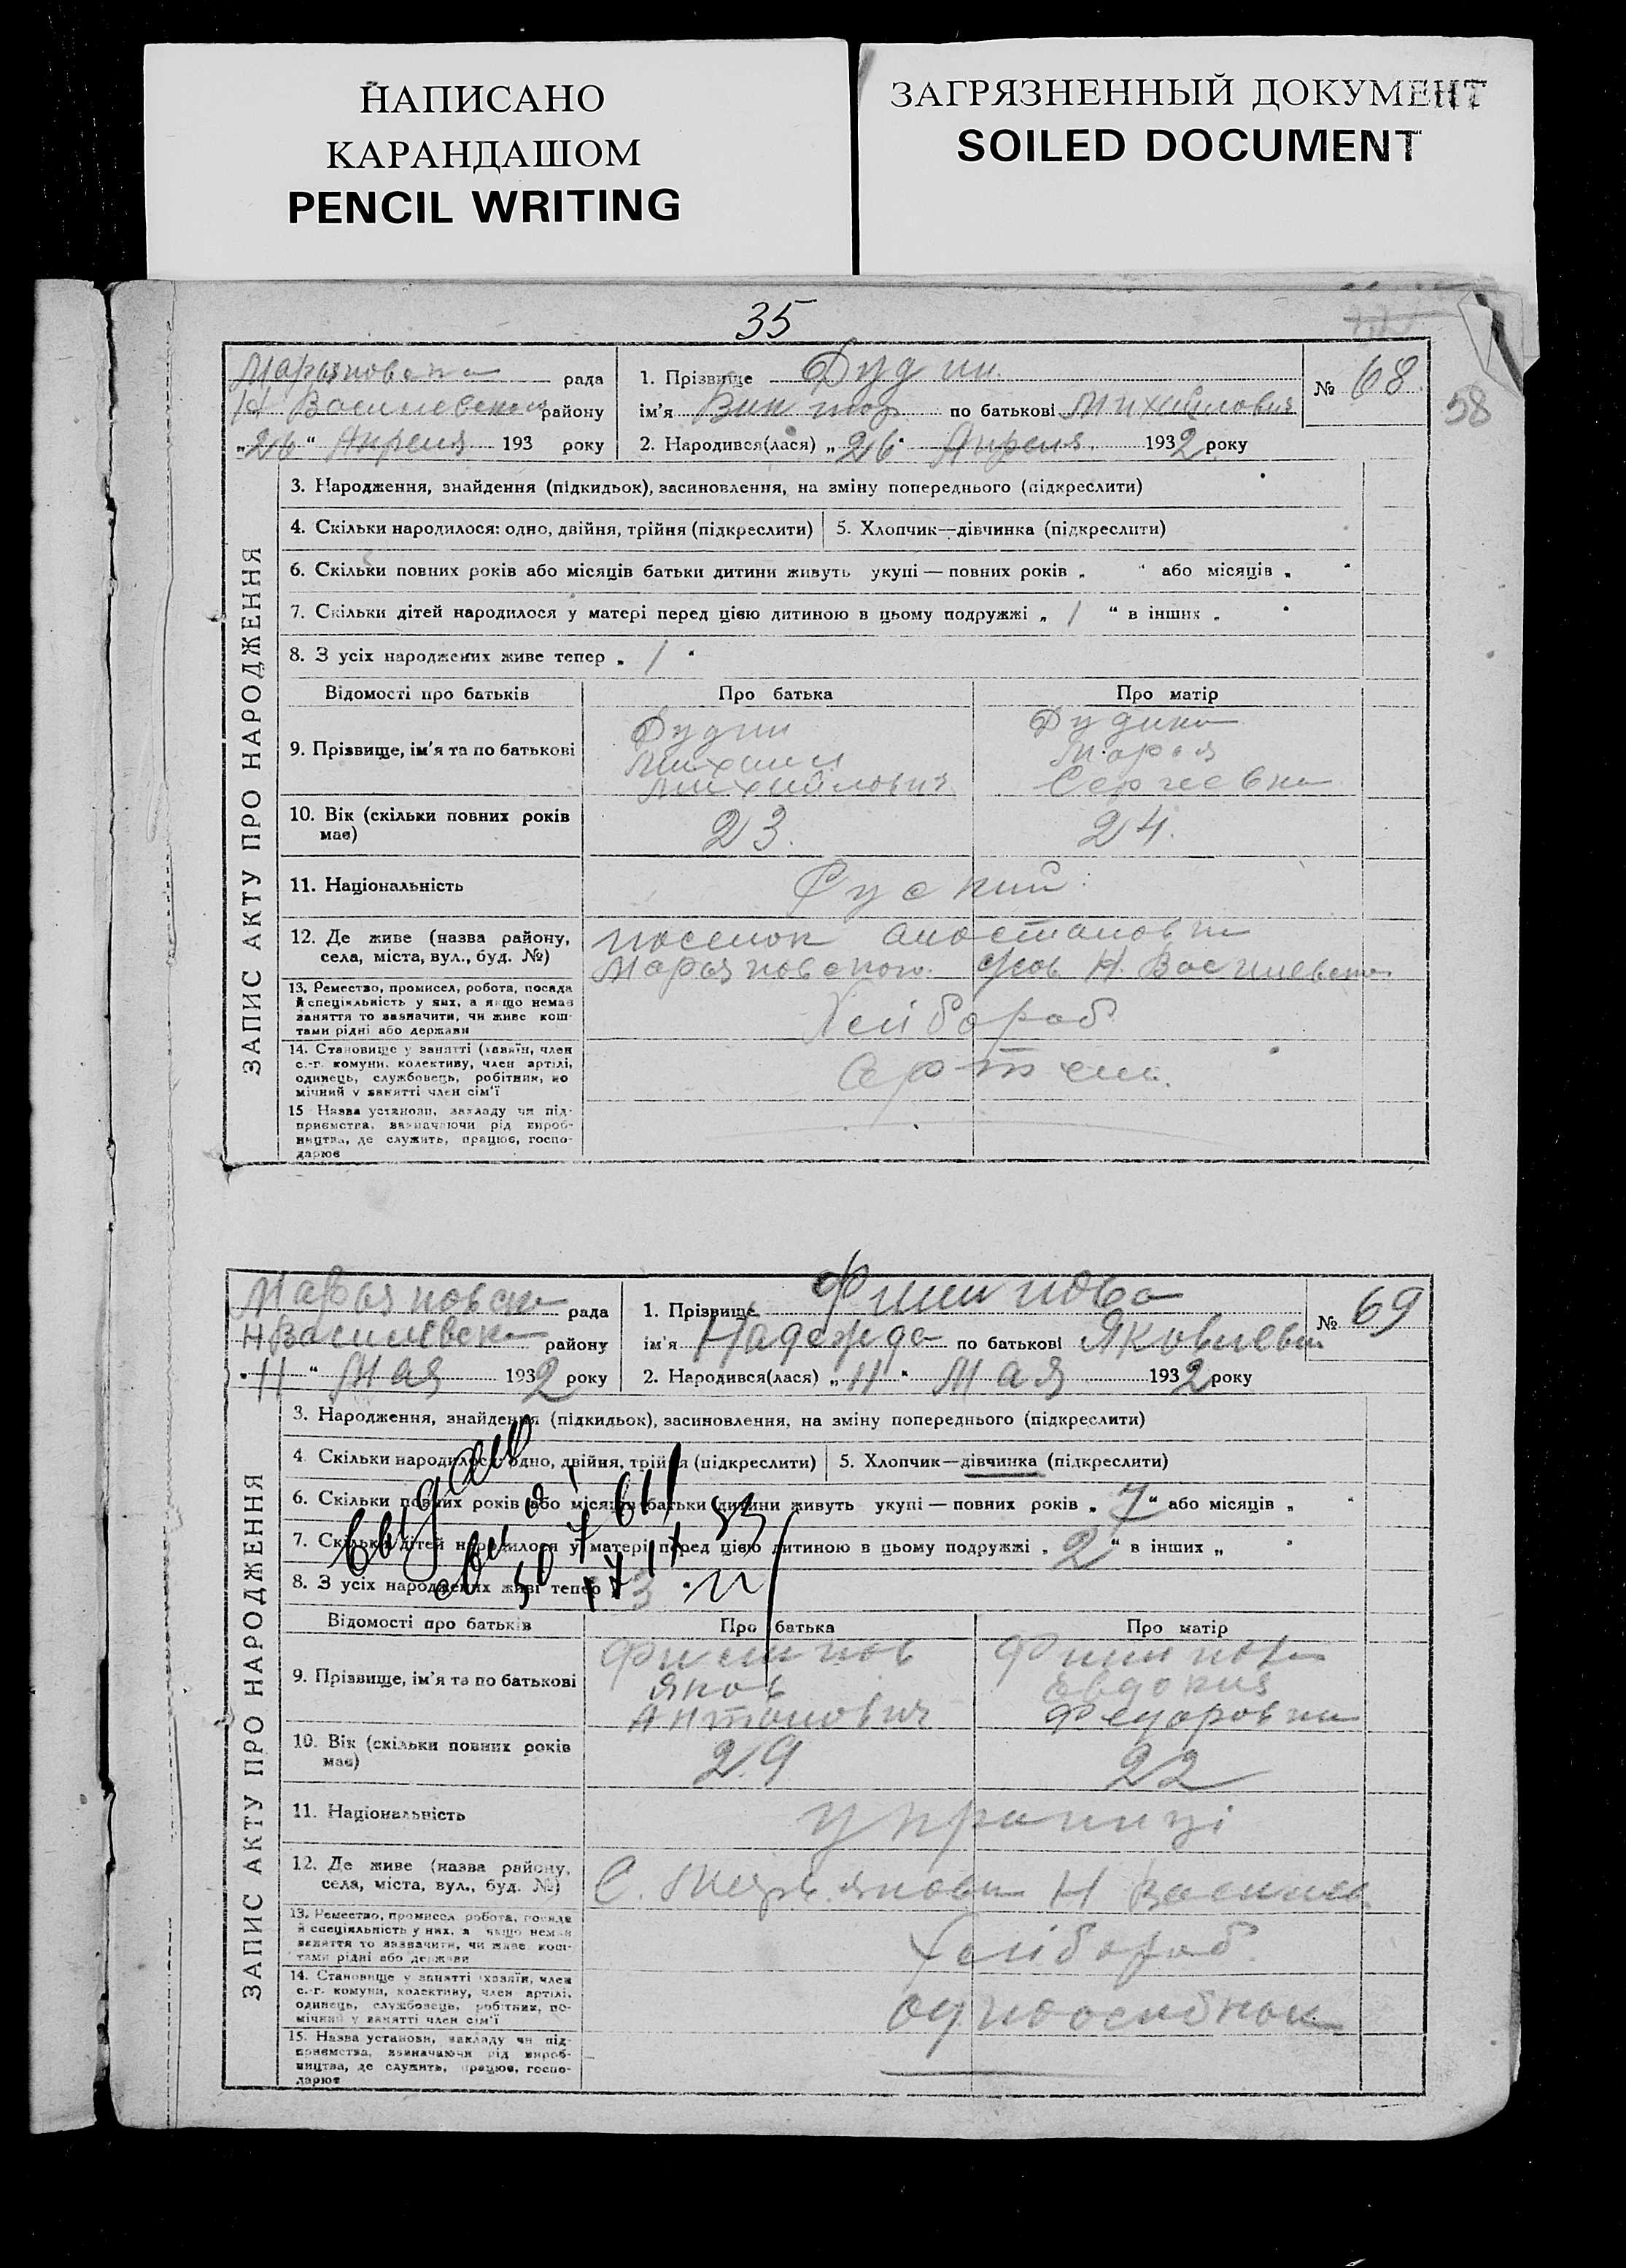 НАПИСАНО
КАРАНДАШОМ
PENCIL WRITING
ЗАГРЯЗНЕННЫЙ ДОКУМЕНТ
SOILED DOCUMENT
35
58
рада
Н Василевская району
„26“ Апреля 193 року
1. Прізвище Дудин
ім'я Виктор по батькові Михайлович
2. Народився(лася) „26“ Апреля 1932 року
№ 68
ЗАПИС АКТУ ПРО НАРОДЖЕННЯ
3. Народження, знайдення (підкидьок), засиновлення, на зміну попереднього (підкреслити)
4. Скільки народилося: одно, двійня, трійня (підкреслити) 5. Хлопчик—дівчинка (підкреслити)
6. Скільки повних років або місяців батьки дитини живуть укупі — повних років „ “ або місяців „ “
7. Скільки дітей народилося у матері перед цією дитиною в цьому подружжі „ 1 “ в інших „ “
8. З усіх народжених живе тепер „ 1 “
Відомості про батьків Про батька Про матір
9. Прізвище, ім'я та по батькові
Дудин
Михаил
Михайлович
Дудина
Мария
Сергеевна
10. Вік (скільки повних років має) 23. 24.
11. Національність Руский
12. Де живе (назва району, села, міста, вул., буд. №)
поселок
Н. Василевка
13. Ремество, промисел, робота, посада й спеціяльність у них, а якщо немає заняття то зазначити, чи живе коштами рідні або держави
Хлібороб
14. Становище у занятті (хазяїн, член с.-г. комуни, колективу, член артілі, одинець, службовець, робітник, помічний у занятті член сім'ї
Артели.
15 Назва установи, закладу чи підприємства, зазначаючи рід виробництва, де служить, працює, господарює
рада
Н Василевска району
„11“ Мая 1932 року
1. Прізвище Филипова
ім'я Надежда по батькові Яковлевна
2. Народився(лася) „11“ Мая 1932 року
№ 69
ЗАПИС АКТУ ПРО НАРОДЖЕННЯ
3. Народження, знайдення (підкидьок), засиновлення, на зміну попереднього (підкреслити)
4. Скільки народилося: одно, двійня, трійня (підкреслити) 5. Хлопчик—дівчинка (підкреслити)
6. Скільки повних років або місяців батьки дитини живуть укупі — повних років „ 7 “ або місяців „ “
7. Скільки дітей народилося у матері перед цією дитиною в цьому подружжі „ 2 “ в інших „ “
8. З усіх народжених живі тепер 3
Відомості про батьків Про батька Про матір
9. Прізвище, ім'я та по батькові
Филипов
Яков
Антонович
Филипова
Евдокия
Федоровна
10. Вік (скільки повних років має) 29 22
11. Національність українці
12. Де живе (назва району, села, міста, вул., буд. №)
С. Мар'яновка Н Василев
13. Ремество, промисел, робота, посада й спеціяльність у них, а якщо немає заняття то зазначити, чи живе коштами рідні або держави
Хлібороб
14. Становище у занятті (хазяїн, член с.-г. комуни, колективу, член артілі, одинець, службовець, робітник, помічний у занятті член сім'ї
15. Назва установи, закладу чи підприємства, зазначаючи рід виробництва, де служить, працює, господарює